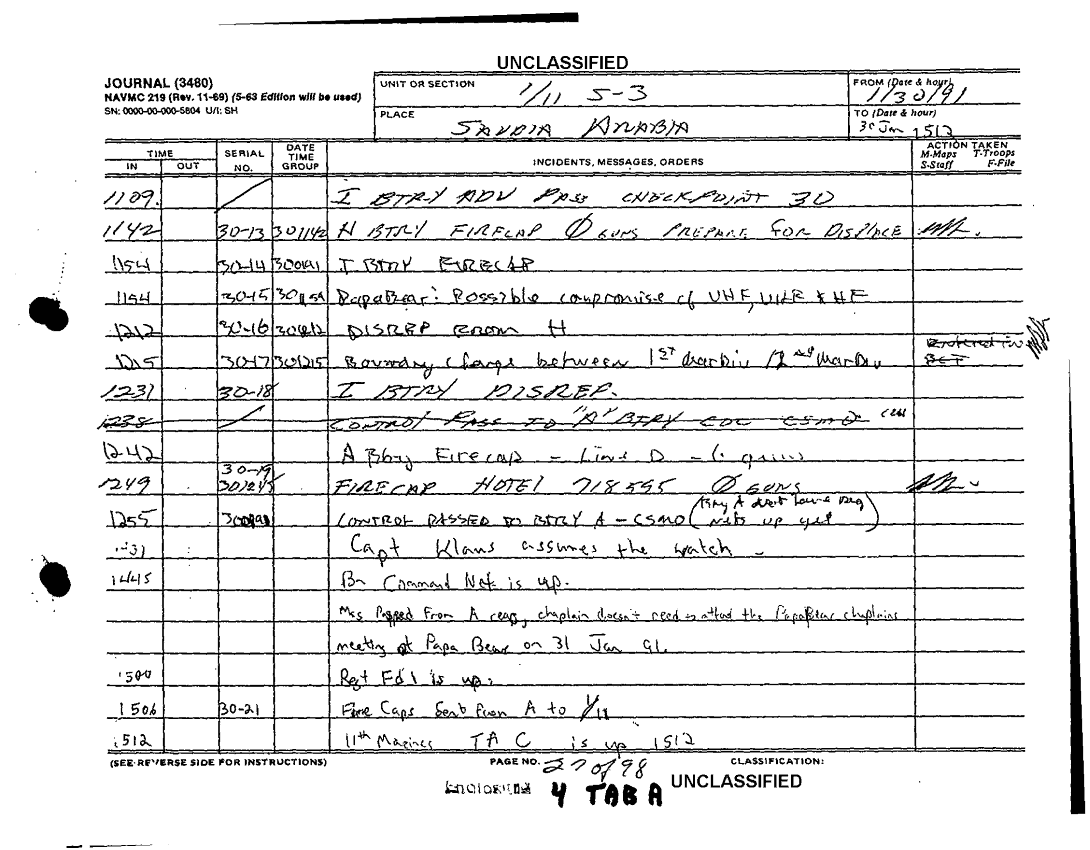 UNCLASSIFIED
JOURNAL (3480)
NAVMC 219 (Rev. 11-69) (5-63 Edition will be used)
SN: 0000-00-000-5804 U/I: SH
UNIT OR SECTION
1/11 S-3
FROM (Date & hour)
1/30/91
PLACE
SAUDIA ARABIA
TO (Date & hour)
30 Jan 1512
TIME
IN OUT
SERIAL NO.
DATE TIME GROUP
INCIDENTS, MESSAGES, ORDERS
ACTION TAKEN
M-Maps T-Troops
S-Staff F-File
1109. I BTRY ADV PASS CHECKPOINT 30
1142 30-13 301142 H BTRY FIRECAP Ø GUNS PREPARE FOR DISPLACE
1154 30-14 I BTRY FIRECAP
1154 30-15 PapaBear: Possible compromise of VHF, UHF & HF
1212 30-16 DISREP FROM H
1215 30-17 301215 Boundry change between 1ST MarDiv / 2nd MarDiv
1231 30-18 I BTRY DISREP.
1238 CONTROL PASS TO "A" BTRY COC CSMO
1242 A Btry Firecap - Line D - 6 guns
30-19
1249 301245 FIRECAP HOTEL 718595 Ø GUNS
1255 CONTROL PASSED TO BTRY A - CSMO (Btry A don't have Reg nets up yet)
Capt Klaus assumes the watch -
1445 Bn Command Net is up.
Mss Passed From A chaplain doesn't need to attend the PapaBear chaplains
meeting at Papa Bear on 31 Jan 91.
1500 Regt Fd 1 is up.
1506 30-21 Fire Caps Sent from A to 1/11
1512 11th Marines TAC is up 1512
(SEE REVERSE SIDE FOR INSTRUCTIONS)
PAGE NO. 27 of 98
CLASSIFICATION:
UNCLASSIFIED
4 TAB A